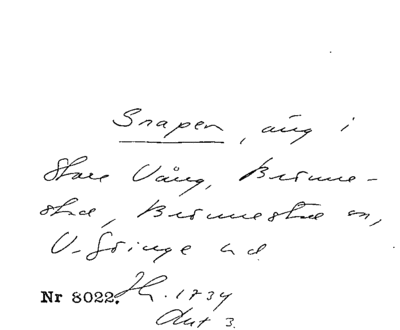 Snapen, äng i
Store Vång, Brönne-
stad, Brönnestad sn,
V. Göinge hd.
Nr 8022. Jb. 1734
Akt 3.